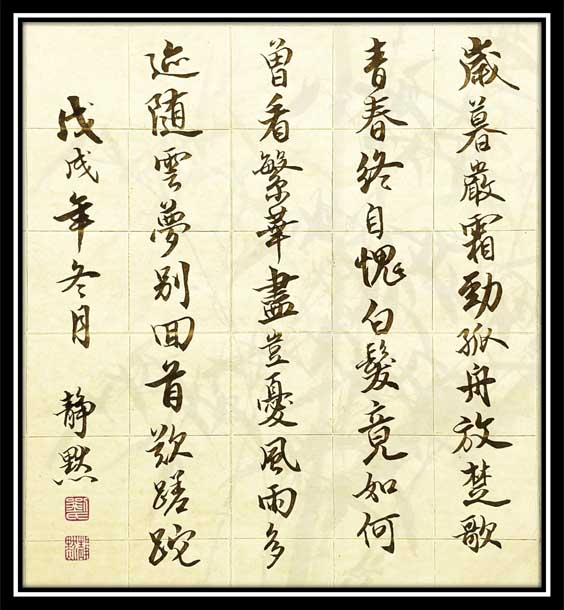 歲暮嚴霜勁孤舟放楚歌
青春終自愧白髮竟如何
曾看繁華盡豈憂風雨多
迹隨雲夢別回首歎蹉跎
戊戌年冬月 静默